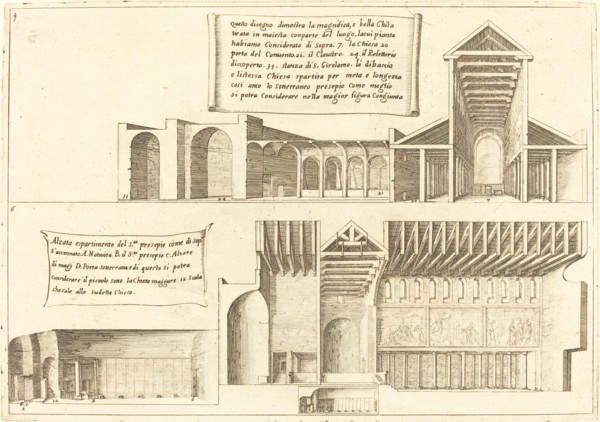 Questo disegno dimostra la magnifica, e bella Chisa
tirata in maiesta conparte del luogo, la cui pianta
habiamo Considerato di Sopra. 7. la Chiesa 20
porta del Conuento. 21. il Claustro. 24. il Refettorio
discoperto. 35. stanza di S. Girolamo. là dibascia
e listessa Chiesa spartita per meta e longezza
cosi anco lo soterraneo presepio Come meglio
si potra Considerare nella magior figura Congiunta
7
6
Alzata espartimento del S.mo presepio come di Sop.
S'accennato. A. Natiuità B. il S.mo presepio C. Altare
di magi D. Porta soterranea e di questo si potra
Considerare il piccolo soto la Chiesa maggiore 12 Scala
che sale alla sudetta Chiesa.